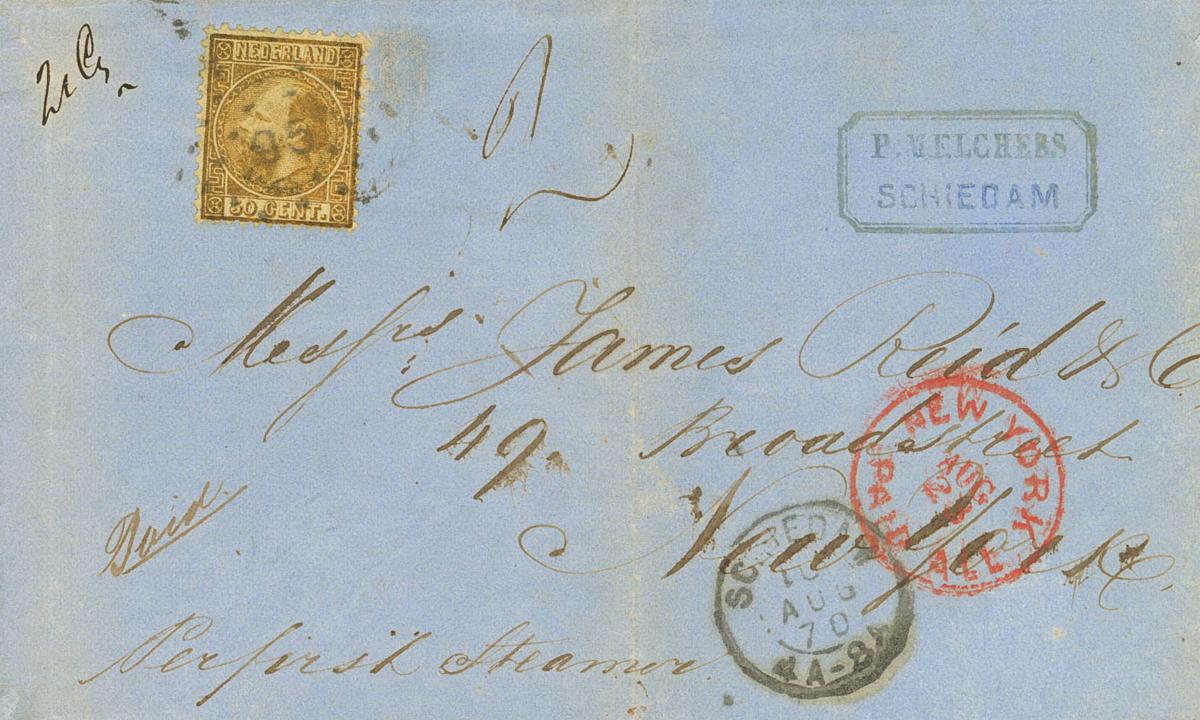 NEDERLAND
93
50 CENT.
P. MELCHERS
SCHIEDAM
Messrs. James Reid & C
49. Broadstreet
New York
NEW YORK
AUG
PAID ALL
Paid.
SCHIEDAM
10
AUG
70
4A-8A
Per first Steamer